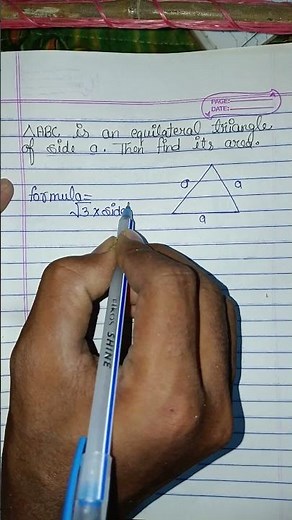 PAGE:
DATE:
△ABC is an equilateral triangle
of side a. Then find its area.
a
a
formula=
√3 × side
a
VIKOS SHINE